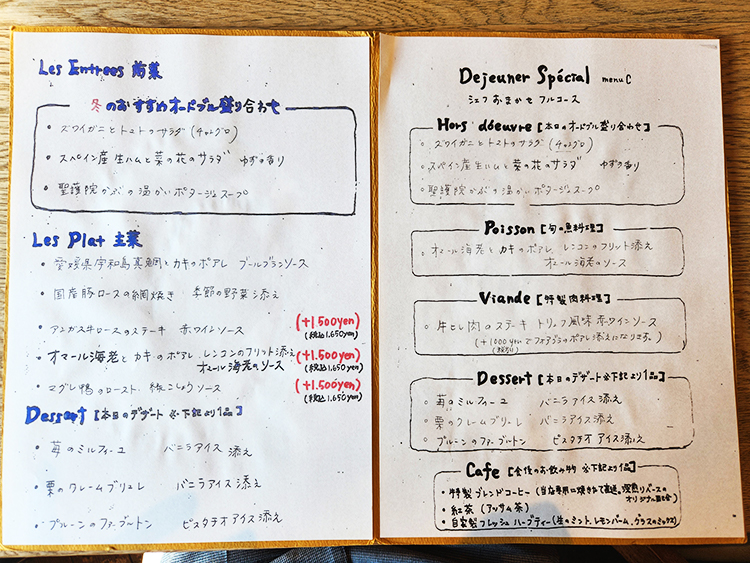 Les Entrees 前菜
冬のおすすめオードブル盛り合わせ
・ズワイガニとトマトのサラダ (キャトグロ)
・スペイン産生ハムと菜の花のサラダ ゆずの香り
・聖護院かぶの温かいポタージュスープ
Les Plat 主菜
・愛媛県宇和島真鯛とカキのポアレ ブールブランソース
・国産豚ロースの網焼き 季節の野菜添え
・アンガス牛ロースのステーキ 赤ワインソース (+1,500yen)
(税込1,650yen)
・オマール海老とカキのポアレ レンコンのフリット添え (+1,500yen)
オマール海老のソース (税込1,650yen)
・マグレ鴨のロースト 粒こしょうソース (+1,500yen)
(税込1,650yen)
Dessert 【本日のデザート 下記より1品】
・苺のミルフィーユ バニラアイス添え
・栗のクレームブリュレ バニラアイス添え
・プルーンのファーブルトン ピスタチオアイス添え
Dejeuner Spécial menu C
シェフおまかせ フルコース
Hors dóeuvre 【本日のオードブル盛り合わせ】
・ズワイガニとトマトのサラダ (キャトグロ)
・スペイン産生ハムと菜の花のサラダ ゆずの香り
・聖護院かぶの温かいポタージュスープ
Poisson 【旬の魚料理】
・オマール海老とカキのポアレ レンコンのフリット添え
オマール海老のソース
Viande 【特製肉料理】
・牛ヒレ肉のステーキ トリュフ風味 赤ワインソース
(+1000yenでフォアグラのポアレ添えになります。)
(税別)
Dessert 【本日のデザート 下記より1品】
・苺のミルフィーユ バニラアイス添え
・栗のクレームブリュレ バニラアイス添え
・プルーンのファーブルトン ピスタチオアイス添え
Cafe 【食後のお飲み物 下記より1品】
・特製ブレンドコーヒー (当店専用に焼きたて直送。深煎りベースの
オリジナル
・紅茶 (アッサム茶)
・自家製フレッシュハーブティー (生のミント、レモンバーム、グラスのミックス)